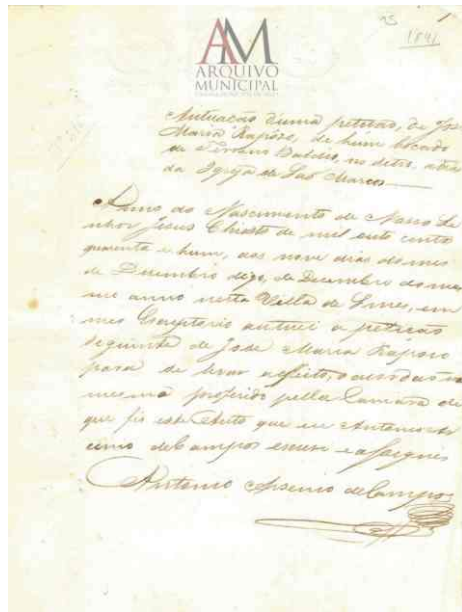 15
1
1841
AM
ARQUIVO
MUNICIPAL
Autuação d'uma petição, de José
Maria Rapôzo, de hum bocado
de Terreno Baldio, no detro, atras
da Igreja de São Marcos
Anno do Nascimento de Nosso Se
nhor Jesus Christo de mil oito centos
quarenta e hum, aos nove dias do mes
de Dezembro digo, de Decembro do mes
mo anno nesta Villa de Sines, em
meu Escriptorio autuei a petição
seguinte de José Maria Rapôzo
para se levar a effeito, o acordão na
mesma proferido pella Camara de
que fis este Auto que eu Antonio Ar
cenio de Campos escrevi e assignei
Antonio Arsenio de Campos